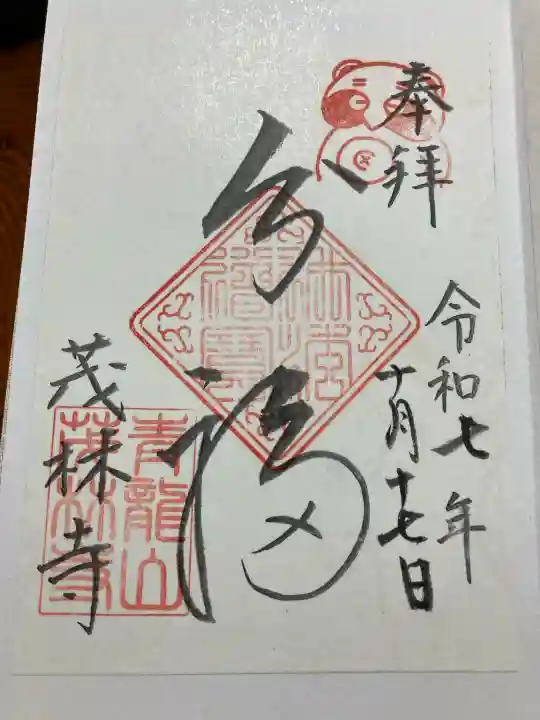 奉拝
令和七年
十月十七日
分福
茂林寺
青龍山
茂林寺